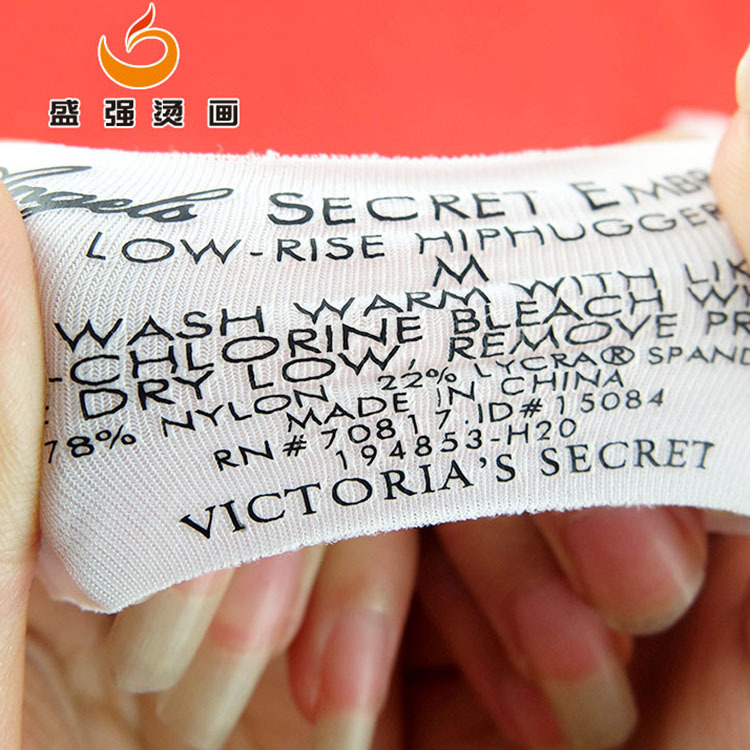 盛强烫画
Angels SECRET EMBR
LOW-RISE HIPHUGGER
M
WASH WARM WITH LIK
-CHLORINE BLEACH W
DRY LOW, REMOVE PR
78% NYLON, 22% LYCRA® SPAND
MADE IN CHINA
RN# 70817.ID#15084
194853-H20
VICTORIA'S SECRET